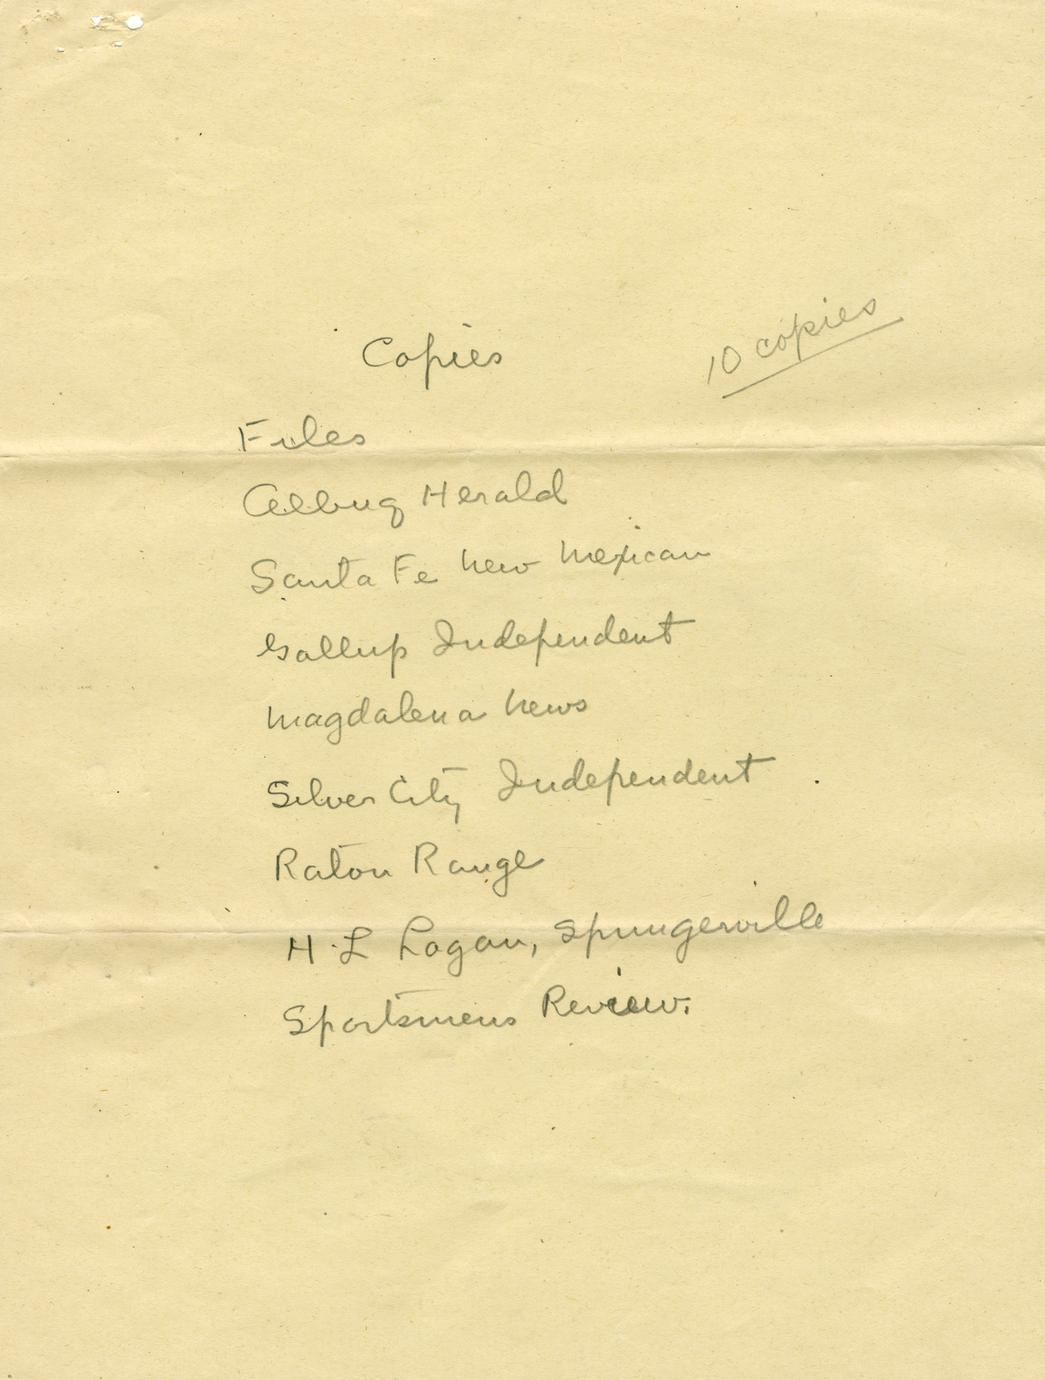 Copies
10 copies
Files
Albuq Herald
Santa Fe New Mexican
Gallup Independent
Magdalena News
Silver City Independent
Raton Range
H. L Logan, Springerville
Sportsmens Review.